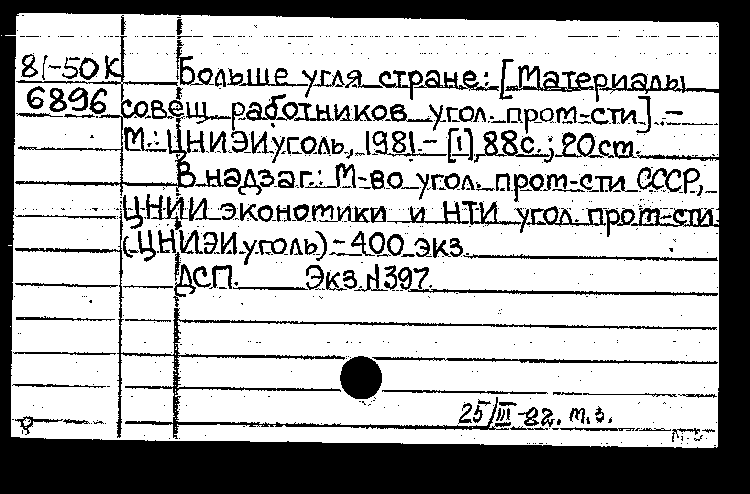 81-50К Больше угля стране: [Материалы
6896 совещ. работников угол. пром-сти]. -
М.: ЦНИЭИуголь, 1981. - [1], 88с.; 20см.
В надзаг.: М-во угол. пром-сти СССР,
ЦНИИ экономики и НТИ угол. пром-сти
(ЦНИЭИуголь) - 400 экз.
ДСП. Экз. N397.
25/III-82. м.з.
8